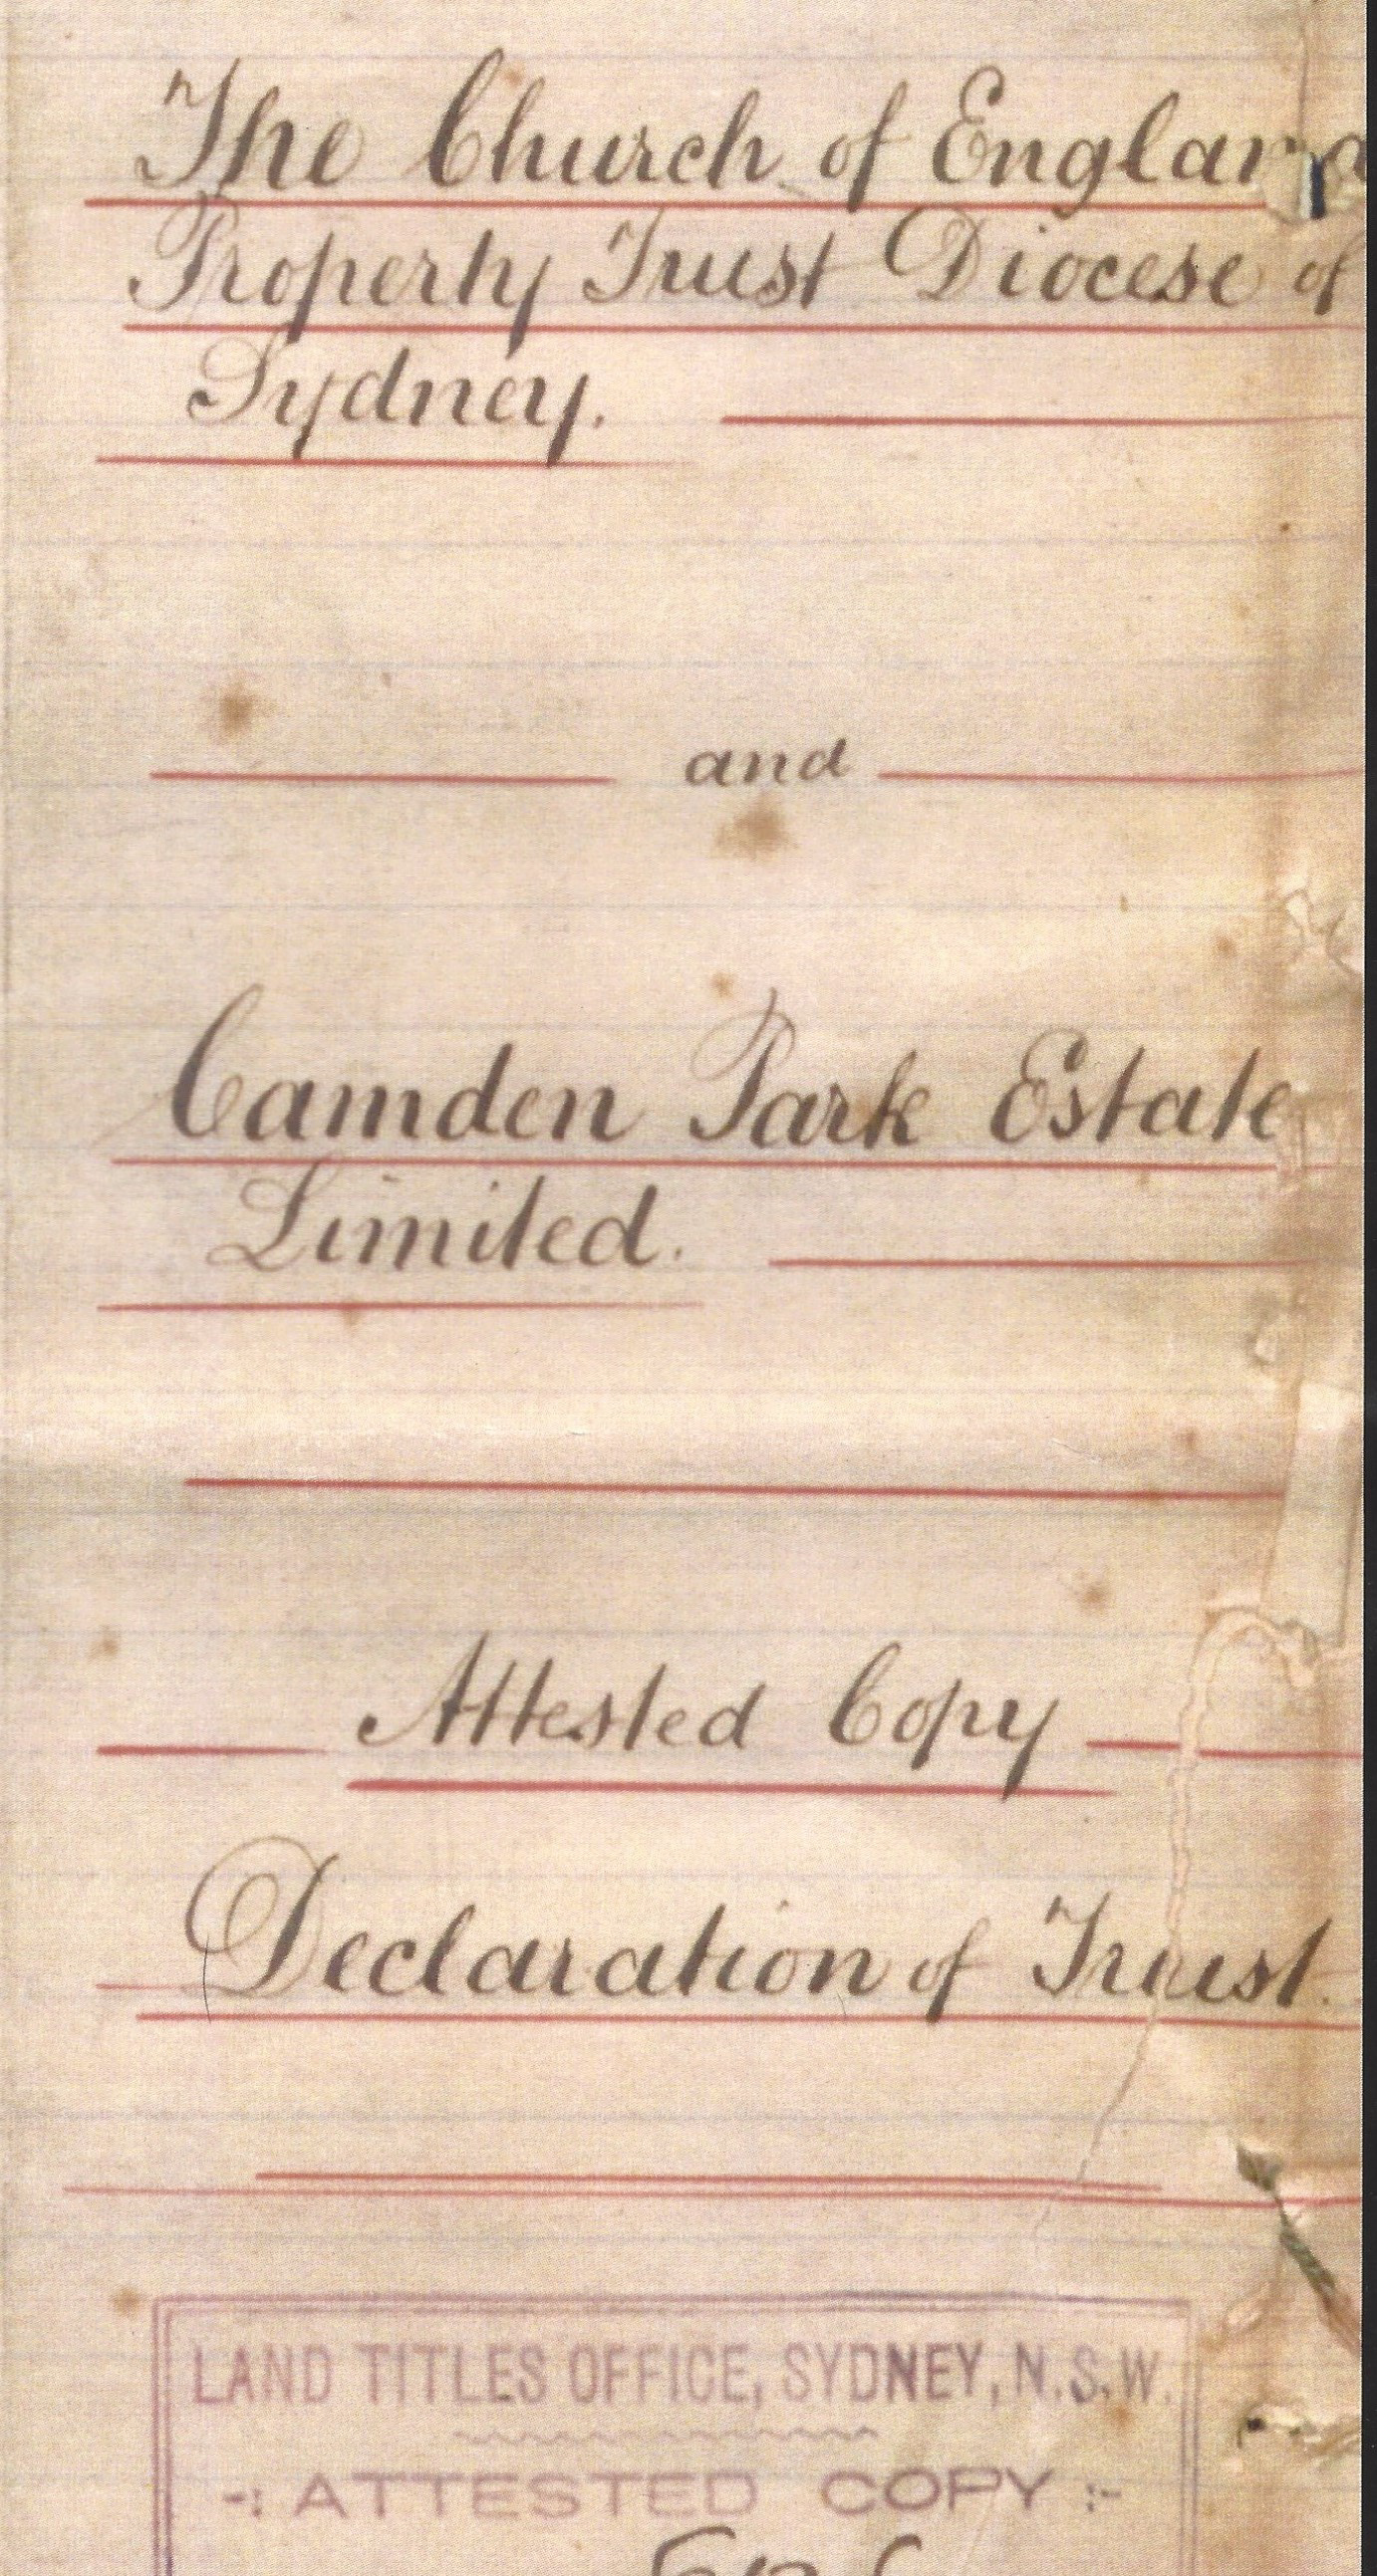 The Church of England
Property Trust Diocese of
Sydney.
and
Camden Park Estate
Limited.
Attested Copy
Declaration of Trust.
LAND TITLES OFFICE, SYDNEY, N.S.W.
-: ATTESTED COPY :-